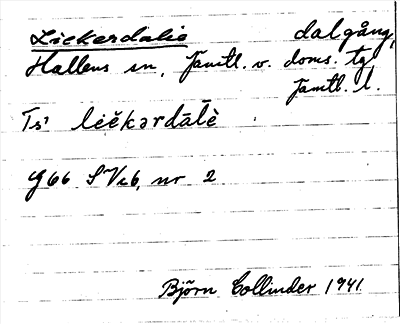 Liekerdalie dalgång,
Hallens sn, Jämtl. v. doms. tgl
Jämtl. l.
Ts: lèĕkərdālē
G66 SVc6, nr 2
Björn Collinder 1941